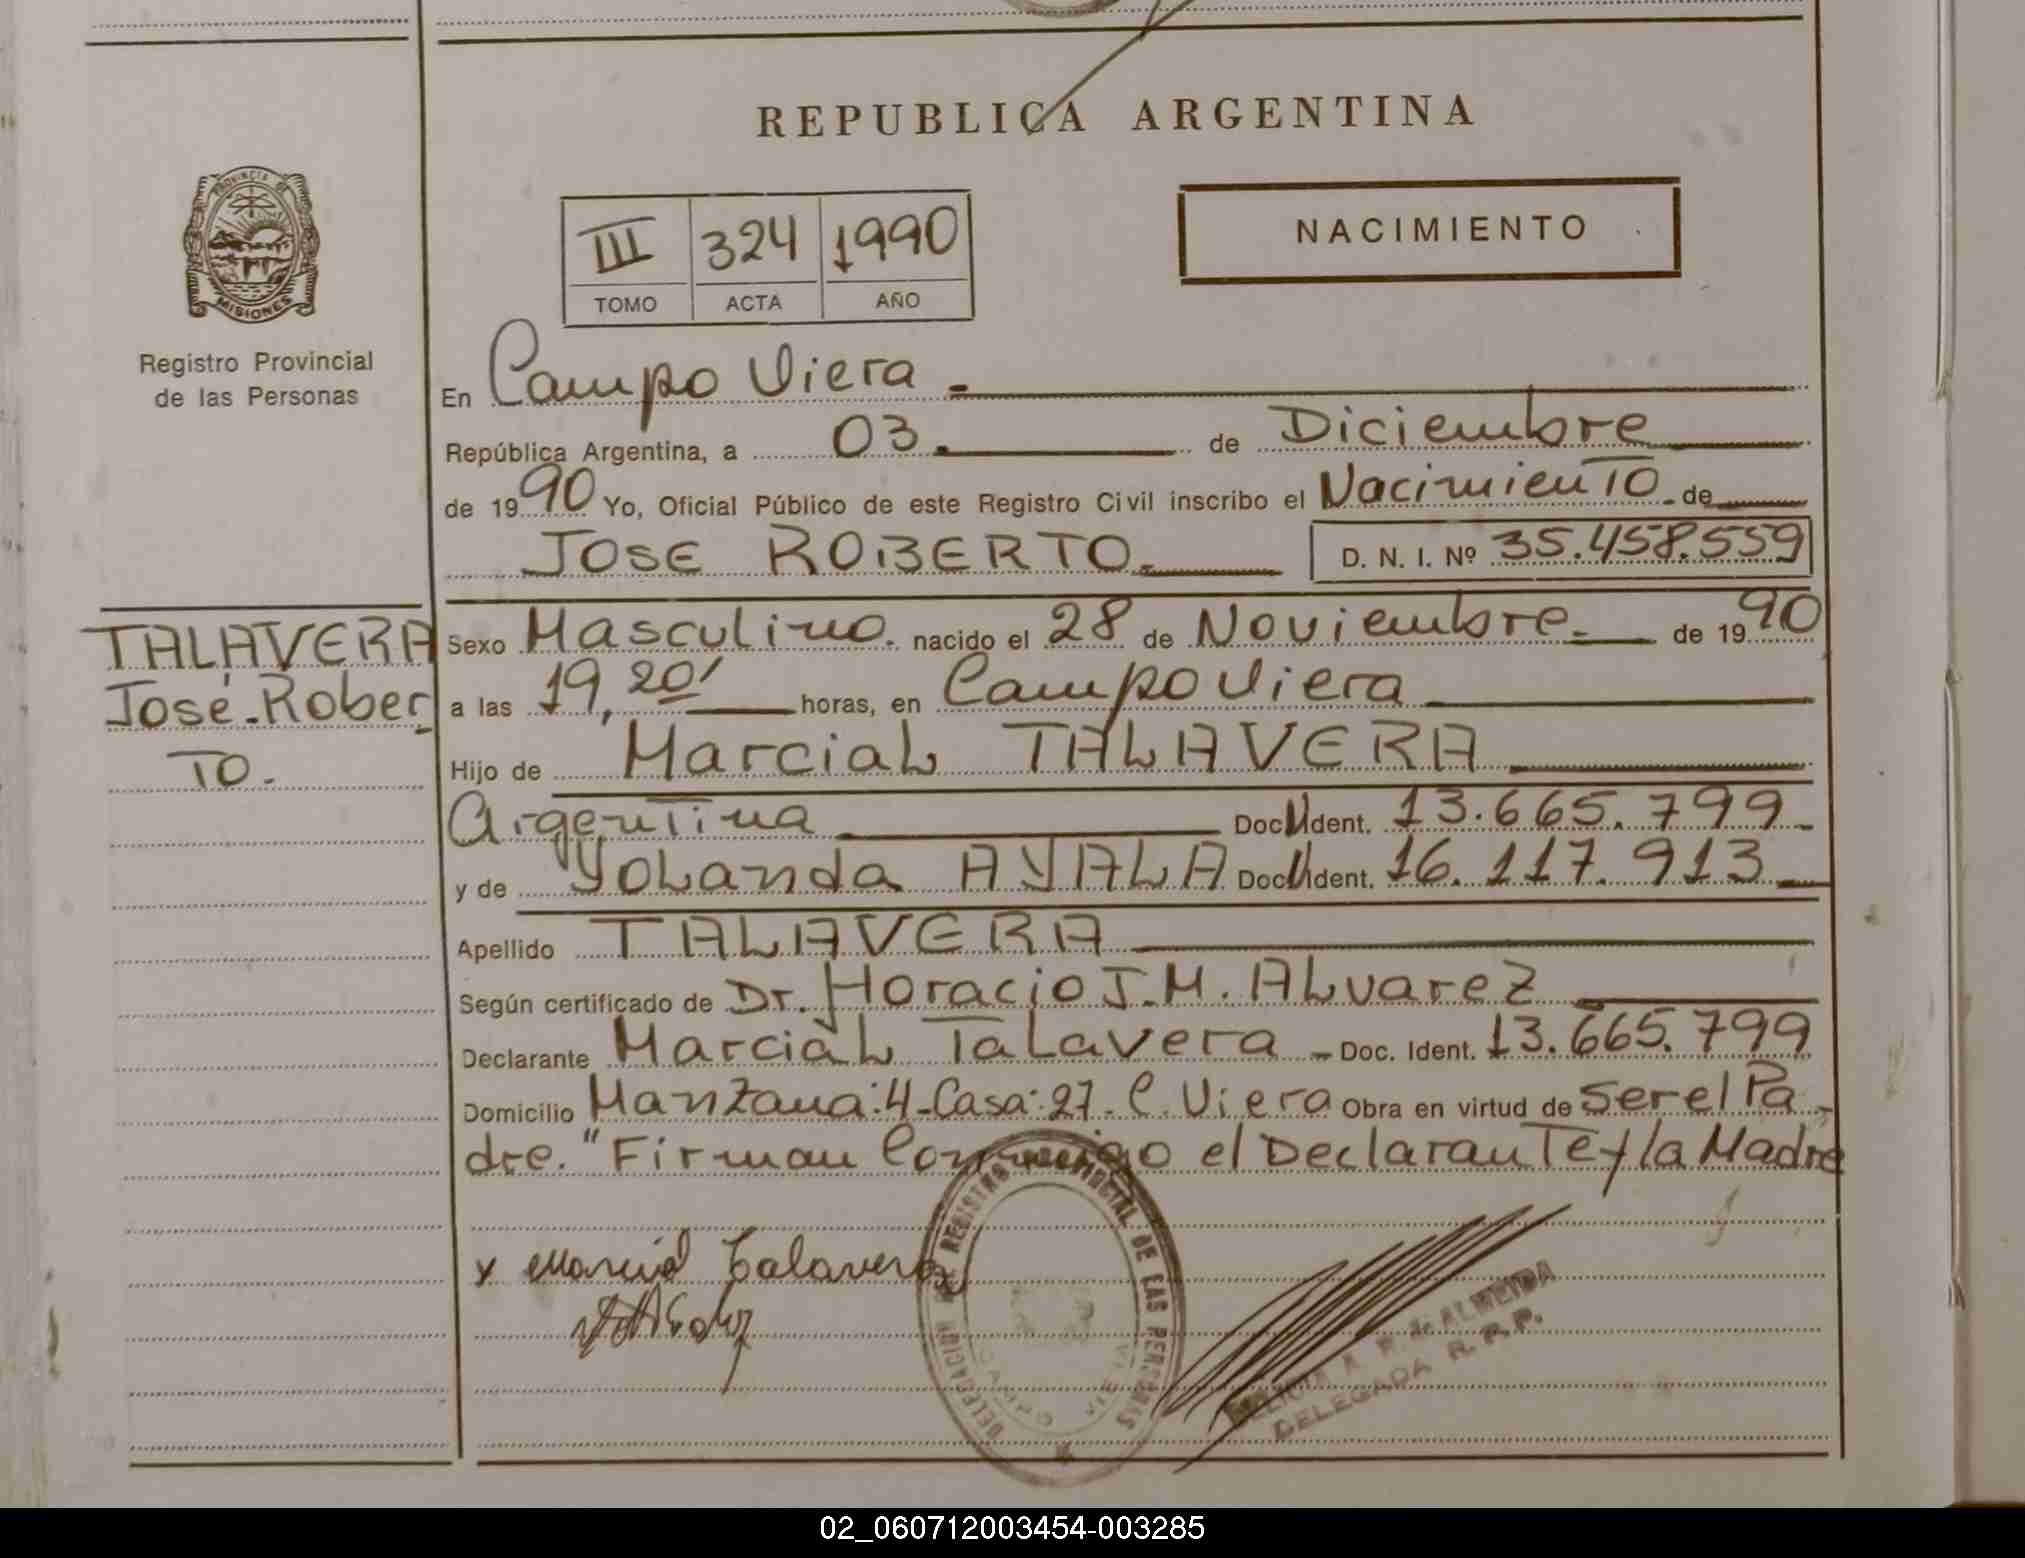 REPUBLICA ARGENTINA
PROVINCIA DE
MISIONES
Registro Provincial
de las Personas
III 324 1990
TOMO ACTA AÑO
NACIMIENTO
En Campo Viera
República Argentina, a 03 de Diciembre
de 1990 Yo, Oficial Público de este Registro Civil inscribo el Nacimiento de
JOSE ROBERTO. D. N. I. Nº 35.458.559
TALAVERA
José Rober
TO.
Sexo Masculino. nacido el 28 de Noviembre de 1990
a las 19,20' horas, en Campo Viera
Hijo de Marcial TALAVERA
Argentina Doc. Ident. 13.665.799
y de Yolanda AYALA Doc. Ident. 16.117.913
Apellido TALAVERA
Según certificado de Dr. Horacio J.M. Alvarez
Declarante Marcial Talavera Doc. Ident. 13.665.799
Domicilio Manzana:4-Casa:27-C. Viera Obra en virtud de ser el Pa-
dre. "Firman Conmigo el Declarante y la Madre
x Marcial Talavera
DELEGACION REGISTRO PROVINCIAL DE LAS PERSONAS
CAMPO VIERA
R. de ALMEIDA
DELEGADA R. P. P.
02_060712003454-003285